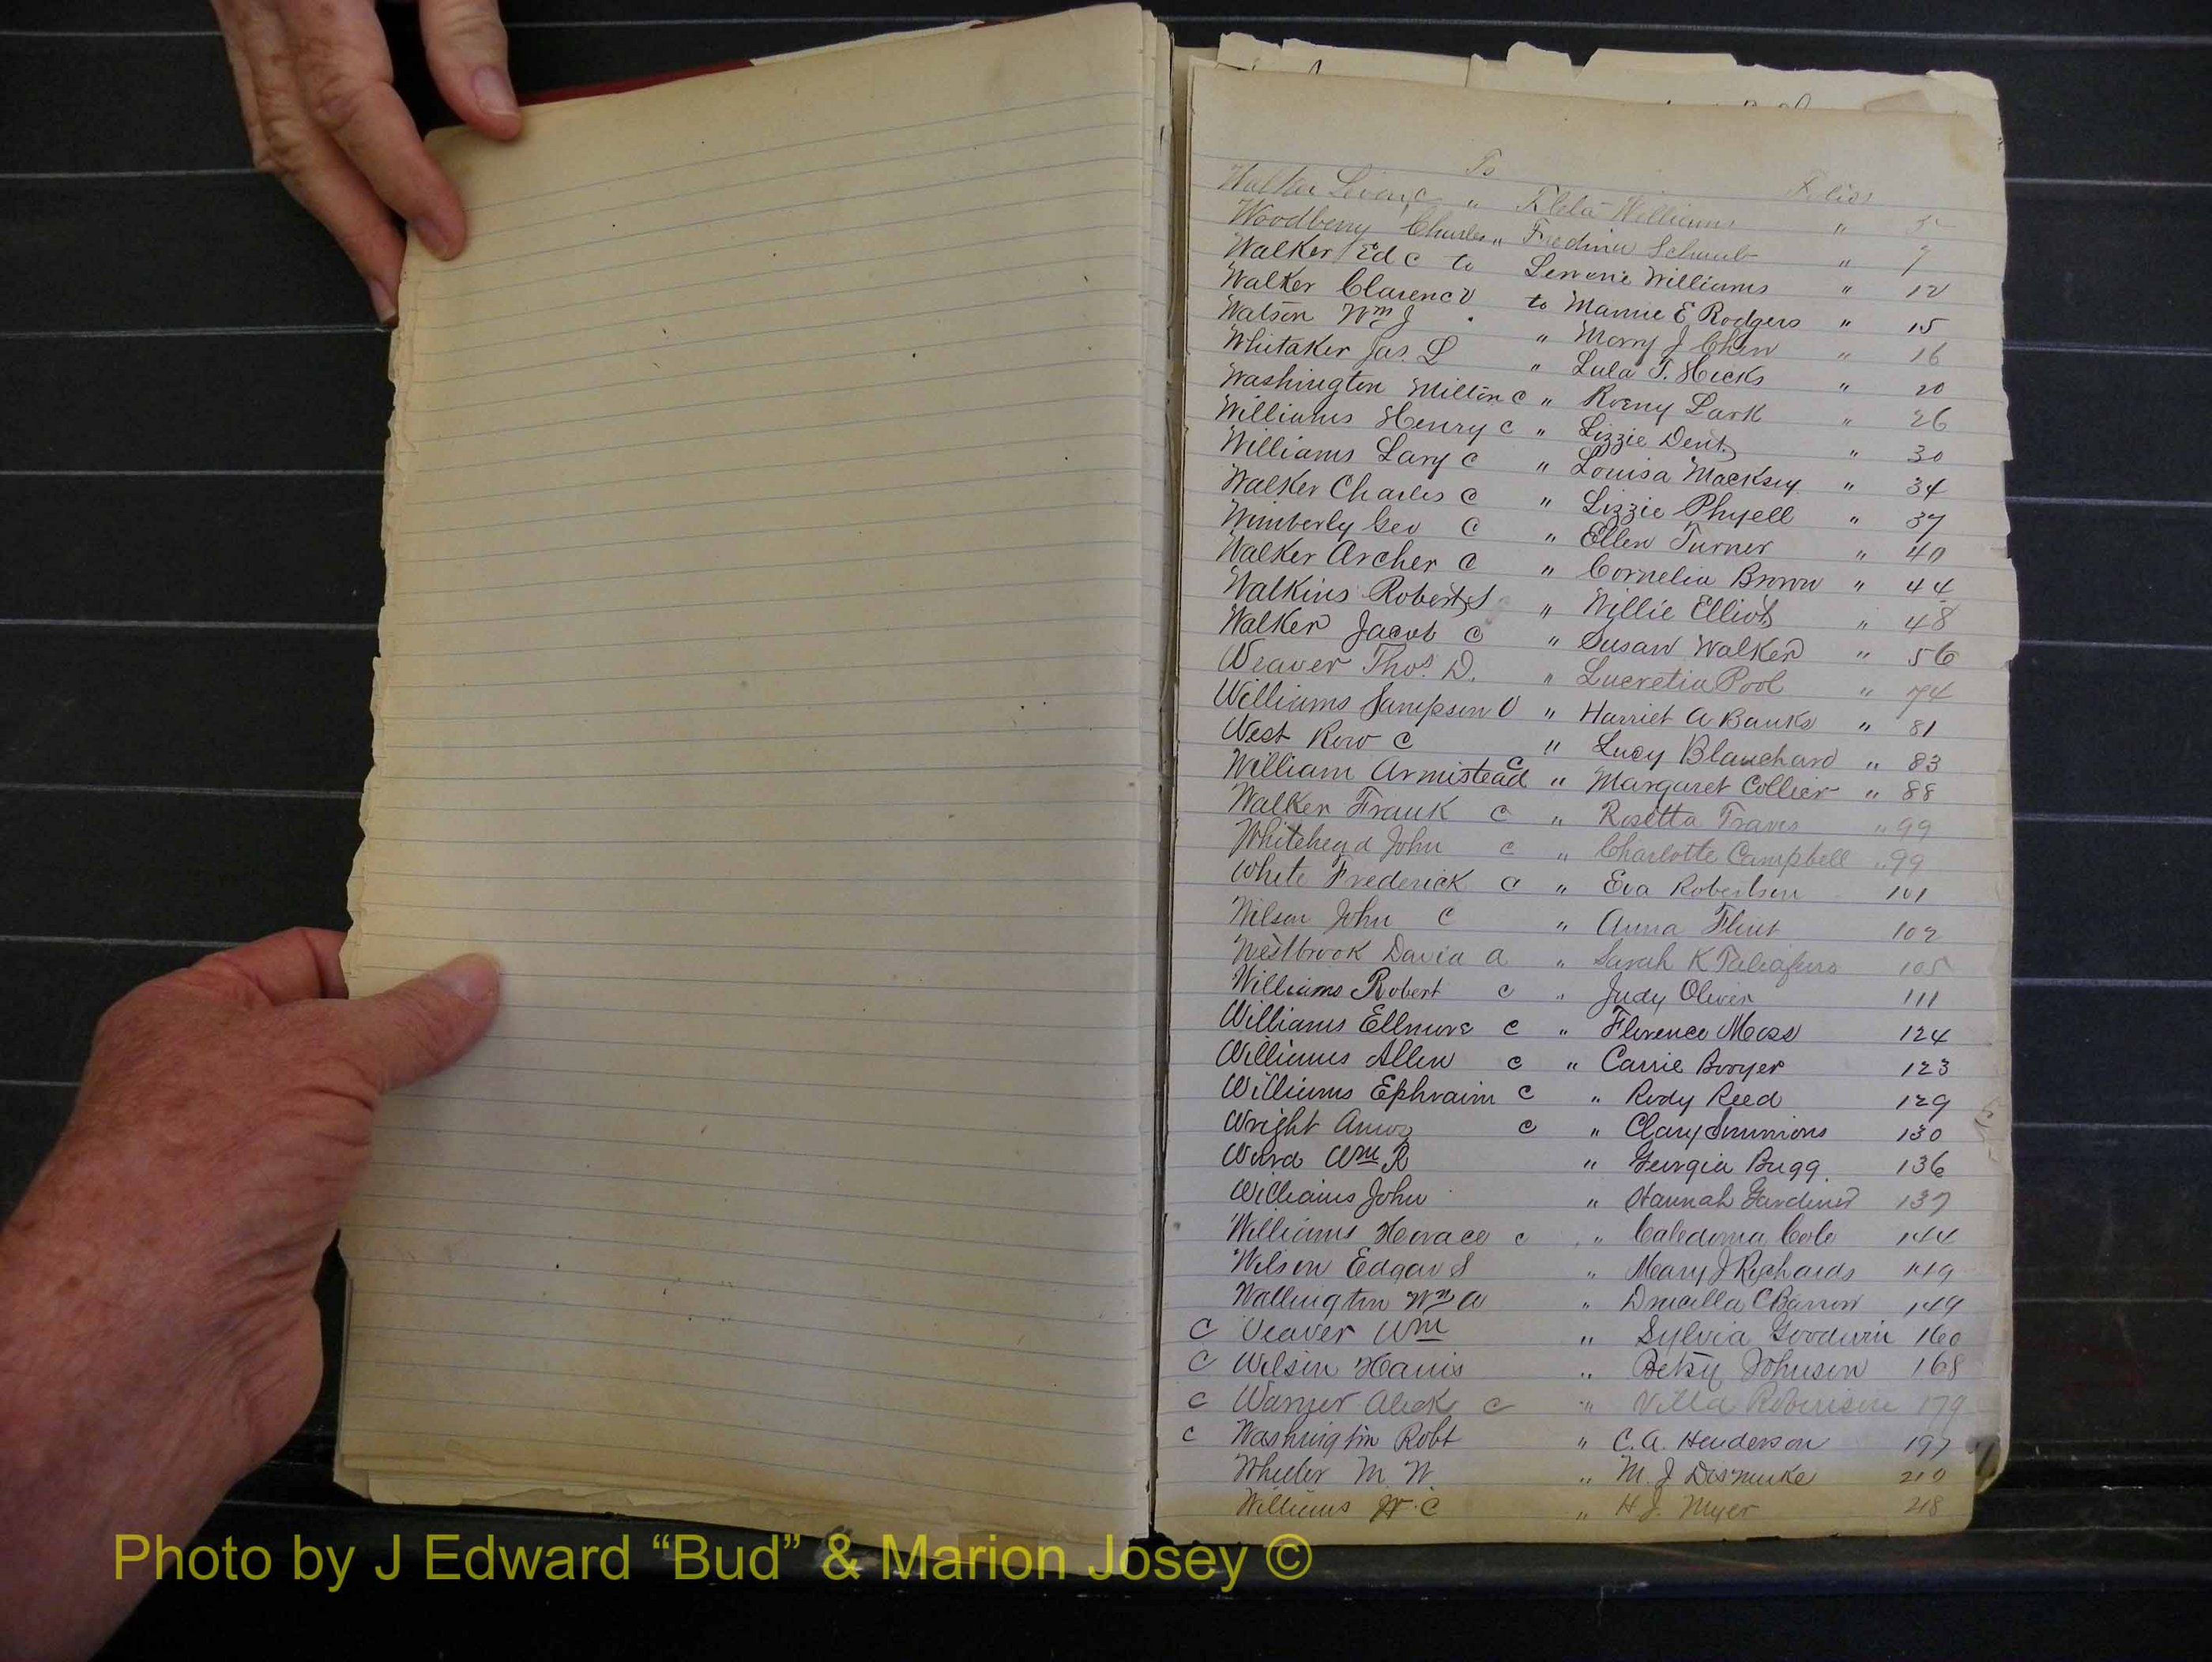 To
Walker c " Williams Folios 5
Woodberry Charles " Schaub " 7
Walker Ed c to Williams " 12
Walker Clarence to Mamie E Rodgers " 15
Watson Wm J " J " 16
Whitaker Jas. L " Lula T. Hicks " 20
Washington Milton c " Roeny Lark " 26
Williams Henry c " Lizzie Dent " 30
Williams Lary c " Louisa Macksey " 34
Walker Charles c " Lizzie Phyell " 37
Wimberly Geo c " Ellen Turner " 40
Walker Archer c " Cornelia Brown " 44
Watkins Robert S " Willie Elliot " 48
Walker Jacob c " Susan Walker " 56
Weaver Thos. D. " Lucretia Pool " 74
Williams Sampson " Harriet A Banks " 81
West Row c " Lucy Blanchard " 83
William Armistead c " Margaret Collier " 88
Walker Frank c " Rosetta Travis " 99
Whitehead John c " Charlotte Campbell " 99
White Frederick c " Eva Robertson 101
Wilson John c " Anna Flint 102
Westbrook David a " Sarah K Taliaferro 105
Williams Robert c " Judy Oliver 111
Williams Ellmore c " Florence Moss 124
Williams Allen c " Carrie Booyer 123
Williams Ephraim c " Rody Reed 129
Wright c " Clary Simmions 130
Ward Wm R " Georgia Bugg. 136
Williams John " Hannah Gardiner 137
Williams Horace c " Caledonia Cole 144
Wilson Edgar S " Mary J Richards 149
Wallington Wm A " Drucilla C Barrow 149
C Weaver Wm " Sylvia Goodwin 160
C Wilson Harris " Betsy Johnson 168
C Warner Aleck c " Villa Robinson 179
C Washington Robt " C. A. Henderson 197
Wheeler M. W " M. J Dismuke 210
Williams W. C " H J. Myer 218
Photo by J Edward “Bud” & Marion Josey ©